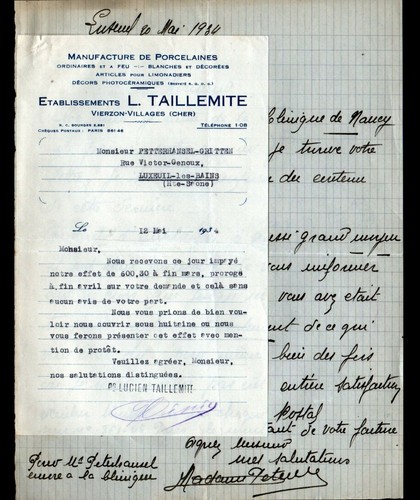 Luxeuil 20 Mai 1934
MANUFACTURE DE PORCELAINES
ORDINAIRES ET A FEU — BLANCHES ET DÉCORÉES
ARTICLES POUR LIMONADIERS
DÉCORS PHOTOCÉRAMIQUES
ETABLISSEMENTS L. TAILLEMITE
VIERZON-VILLAGES (CHER)
TÉLÉPHONE 1-08
CHÈQUES POSTAUX : PARIS
Monsieur PETTERHANSEL-GRITTEN
Rue Victor-Genoux,
LUXEUIL-les-BAINS
(Hte-Saone)
Le 12 Mai 1934
Monsieur,
Nous recevons ce jour impayé
notre effet de 600,30 à fin mars, prorogé
à fin avril sur votre demande et celà sans
aucun avis de votre part.
Nous vous prions de bien vou-
loir nous couvrir sous huitaine ou nous
vous ferons présenter cet effet avec men-
tion de protêt.
Veuillez agréer, Monsieur,
nos salutations distinguées.
PP LUCIEN TAILLEMITE
clinique de Nancy
je trouve votre
du contenu
aussi grand
vous informer
vous avez était
de ce qui
bien des fois
entière satisfaction
postal
de votre facture
mes salutations
Madame
Pour Mr Peterhansel
encore a la clinique